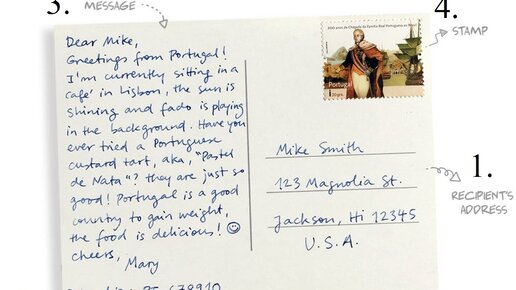 3.
MESSAGE
4.
STAMP
Dear Mike,
Greetings from Portugal!
I'm currently sitting in a
café in Lisbon, the sun is
shining and fado is playing
in the background. Have you
ever tried a Portuguese
custard tart, aka, "Pastel
de Nata"? they are just so
good! Portugal is a good
country to gain weight,
the food is delicious!
cheers,
Mary
200 anos da Chegada da Família Real Portuguesa ao Brasil
Portugal
Mike Smith
123 Magnolia St.
Jackson, Hi 12345
U.S.A.
1.
RECIPIENT'S
ADDRESS